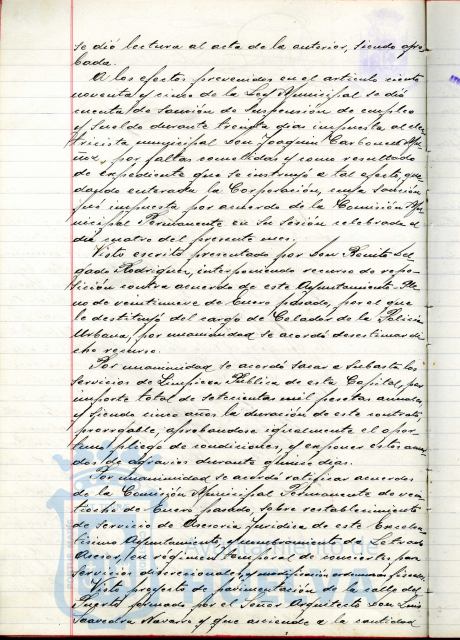 se dió lectura al acta de la anterior, siendo apro-
bada.
A los efectos prevenidos en el artículo ciento
noventa y cinco de la Ley Municipal se dió
cuenta de sanción de suspensión de empleo
y sueldo durante treinta días impuesta al elec-
tricista municipal Don Joaquín Carbonell
por faltas cometidas y como resultado
de expediente que se instruyó a tal efecto, que-
dando enterada la Corporación, cuya sanción
fué impuesta por acuerdo de la Comisión Mu-
nicipal Permanente en su sesión celebrada el
día cuatro del presente mes.
Visto escrito presentado por Don Benito Del-
gado Rodríguez, interponiendo recurso de repo-
sición contra acuerdo de este Ayuntamiento Ple-
no de veintinueve de Enero pasado, por el que
le destituyó del cargo de Celador de la Policía
Urbana, por unanimidad se acordó desestimar di-
cho recurso.
Por unanimidad se acordó sacar a subasta los
servicios de Limpieza Pública de esta Capital, por
importe total de setecientas mil pesetas anuales,
y siendo cinco años la duración de este contrato
prorrogable, aprobándose igualmente el opor-
tuno pliego de condiciones, y exponer estos acuer-
dos de agravios durante quince días.
Por unanimidad se acordó ratificar acuerdos
de la Comisión Municipal Permanente de vein-
tiocho de Enero pasado, sobre restablecimiento
de Servicio de Asesoría Jurídica de este Excelen-
tísimo Ayuntamiento, y nombramiento de Letrado
Asesor, en régimen
servicios discrecionales, y
Visto proyecto de pavimentación de la calle del
Puerto formado por el Señor Arquitecto Don Luis
Saavedra Navarro y que asciende a la cantidad
Ayuntamiento de
HUELVA